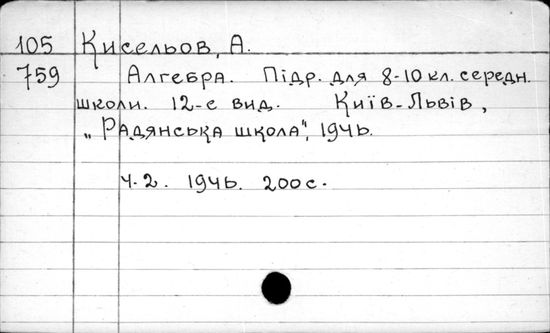 105 Кисельов, А.
759 Алгебра. Підр. для 8-10 кл. середн.
школи. 12-е вид. Київ-Львів,
„Радянська школа", 1946.
ч. 2. 1946. 200 с.